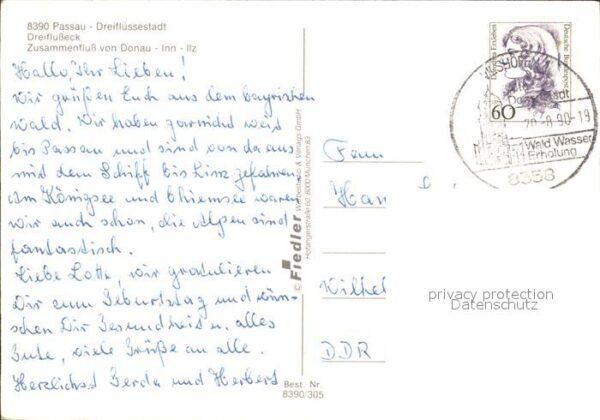 8390 Passau - Dreiflüssestadt
Dreiflußeck
Zusammenfluß von Donau - Inn - Ilz
Hallo, Ihr Lieben!
Wir grüßen Euch aus dem bayrischen
Wald. Wir haben garnicht weit
bis Passau und sind von da aus
mit dem Schiff bis Linz gefahren.
Am Königsee und Chiemsee waren
wir auch schon, die Alpen sind
fantastisch.
Liebe Lotte, wir gratulieren
Dir zum Geburtstag und wün-
schen Dir Gesundheit u. alles
Gute, viele Grüße an alle.
Herzlichst Gerda und Herbert
© Fiedler Werbestudio & Verlags GmbH
8000 München 83
Best. Nr.
8390/305
Deutsche Bundespost
60
20-9.90-19
Wald Wasser
Erholung
8358
Han
Wilhel
DDR
privacy protection
Datenschutz